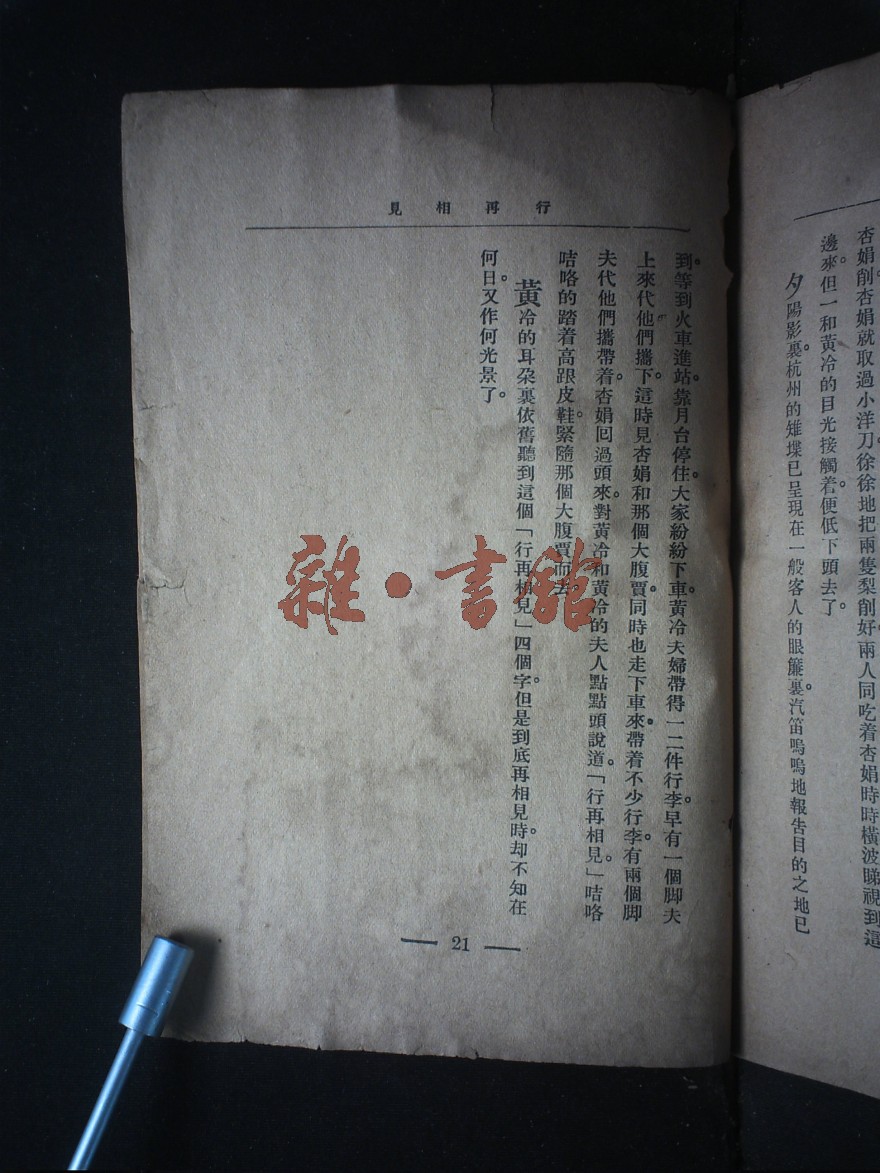 杏娟削。杏娟就取過小洋刀。徐徐地把兩隻梨削好。兩人同吃着。杏娟時時橫波睇視到這
邊來。但一和黃冷的目光接觸着。便低下頭去了。
夕陽影裏。杭州的雉堞已呈現在一般客人的眼簾裏。汽笛嗚嗚地報告目的之地已
行再相見
到。等到火車進站。靠月台停住。大家紛紛下車。黃冷夫婦帶得一二件行李。早有一個脚夫
上來代他們攜下。這時見杏娟和那個大腹賈。同時也走下車來。帶着不少行李。有兩個脚
夫代他們攜帶着。杏娟回過頭來。對黃冷和黃冷的夫人點點頭說道。「行再相見。」咭咯
咭咯的踏着高跟皮鞋。緊隨那個大腹賈而去。
黃冷的耳朵裏依舊聽到這個「行再相見」四個字。但是到底再相見時。却不知在
何日。又作何光景了。
21
雜·書館